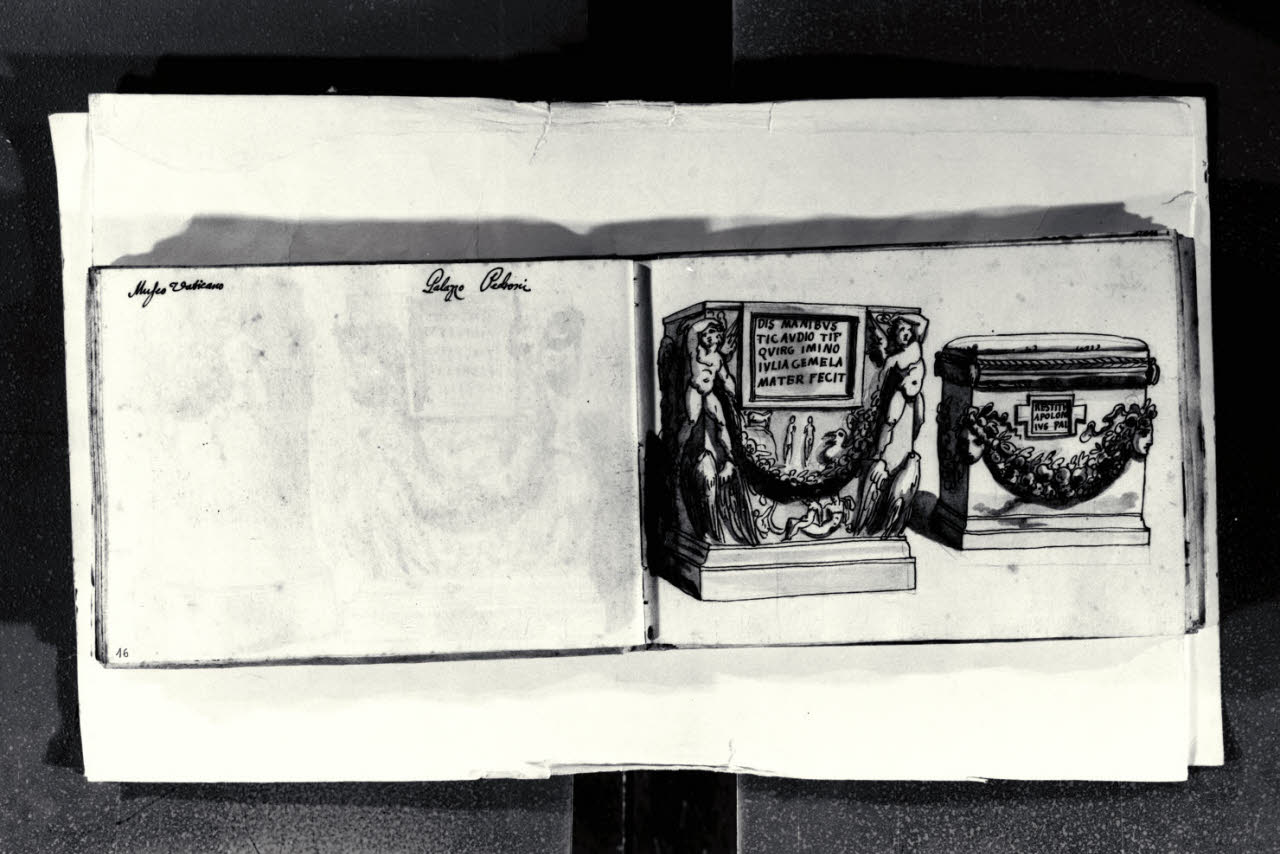 Museo Vaticano
Palazzo
16
DIS MANIBVS
TICAVDIO TIF
QVIRG IMINO
IVLIA GEMELA
MATER FECIT
RESTITV
APOLON
IVS PAL